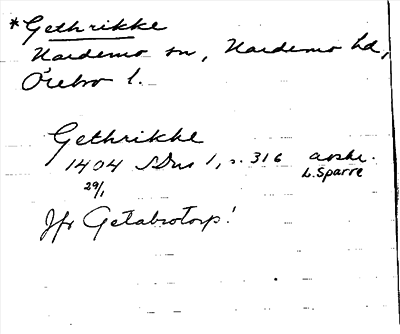 *Gethrikke
Hardemo sn, Hardemo hd,
Örebro l.
Gethrikke
1404 SDns 1, s. 316 avskr.
29/1 L. Sparre
Jfr Getabrotorp!